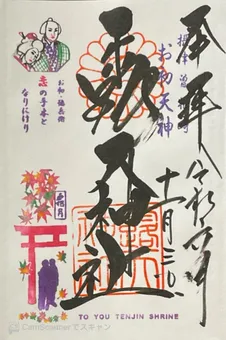 奉拝
摂津 曽根崎
お初天神
露天神社
十一月三〇日
お初・徳兵衛
恋の手本と
なりにけり
霜月
TO YOU TENJIN SHRINE
CamScannerでスキャン